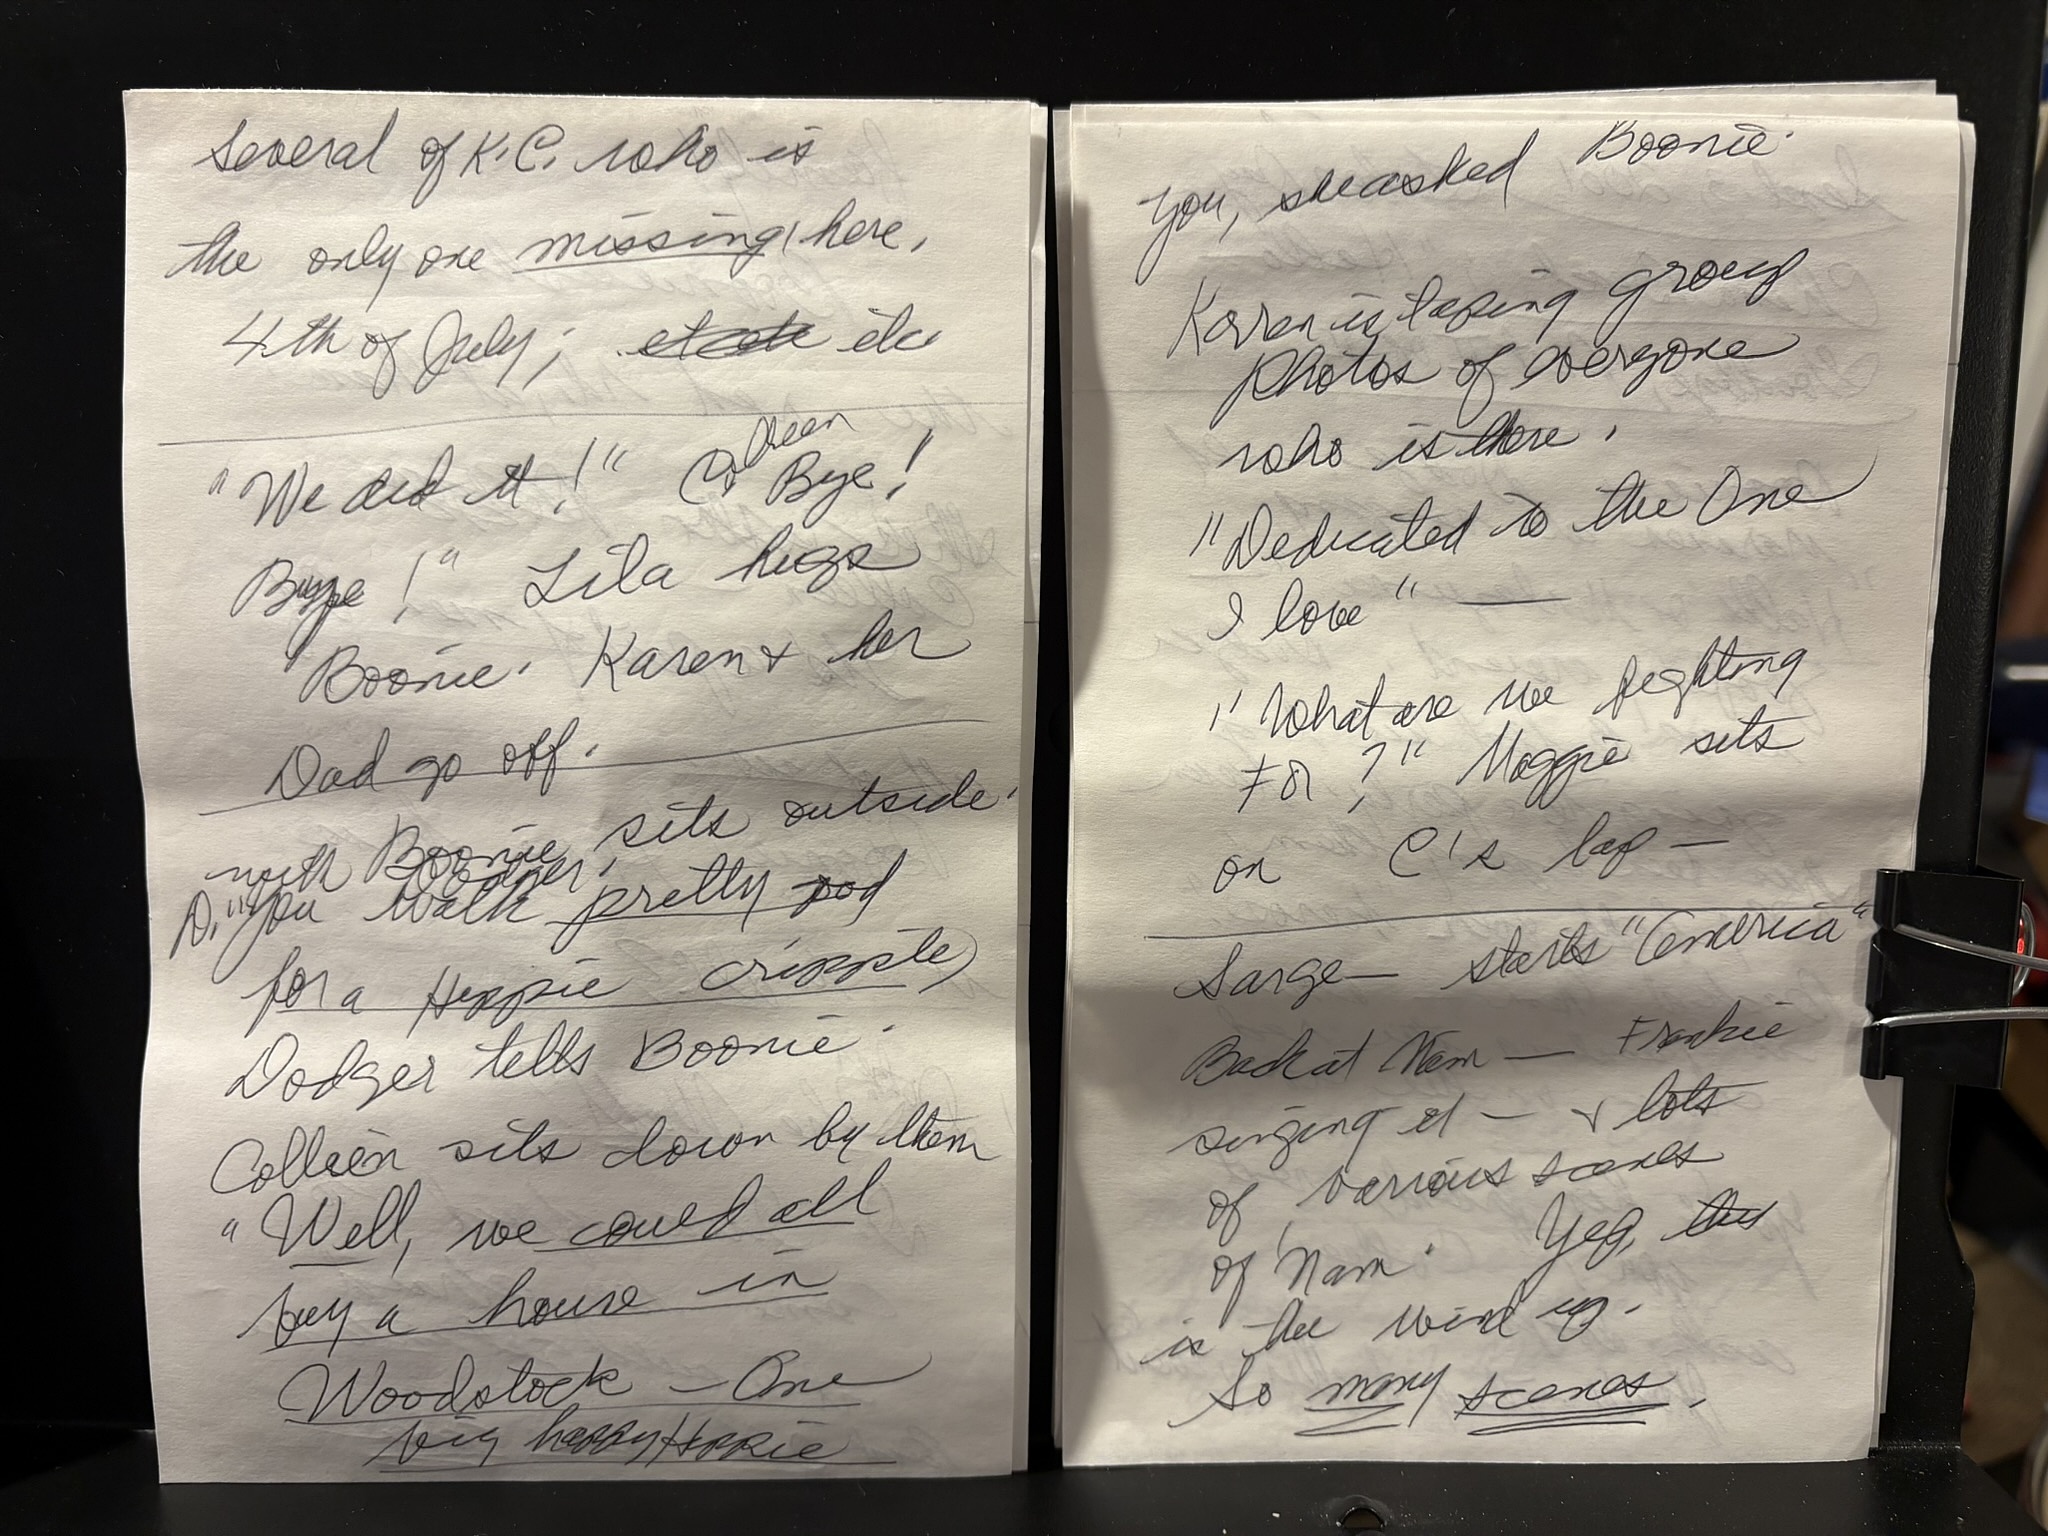 Several of K.C. who is
the only one missing, here,
4th of July; etc
"We did it!" Colleen
Bye!
Bye!" Lila hugs
Boonie. Karen & her
Dad go off.
with Boonie, sits outside.
Dodger,
D. "You walk pretty good
for a Hippie cripple,
Dodger tells Boonie.
Colleen sits down by them
"Well, we could all
buy a house in
Woodstock – One
big happy Hippie
you, she asked Boonie.
Karen is taping group
photos of everyone
who is there.
"Dedicated to the One
I love" —
"What are we fighting
For?" Maggie sits
on C's lap –
Sarge – starts "America"
Back at Nam — Frankie
singing it – & lots
of various scenes
of 'Nam. Yep, this
is the wind up.
So many scenes.